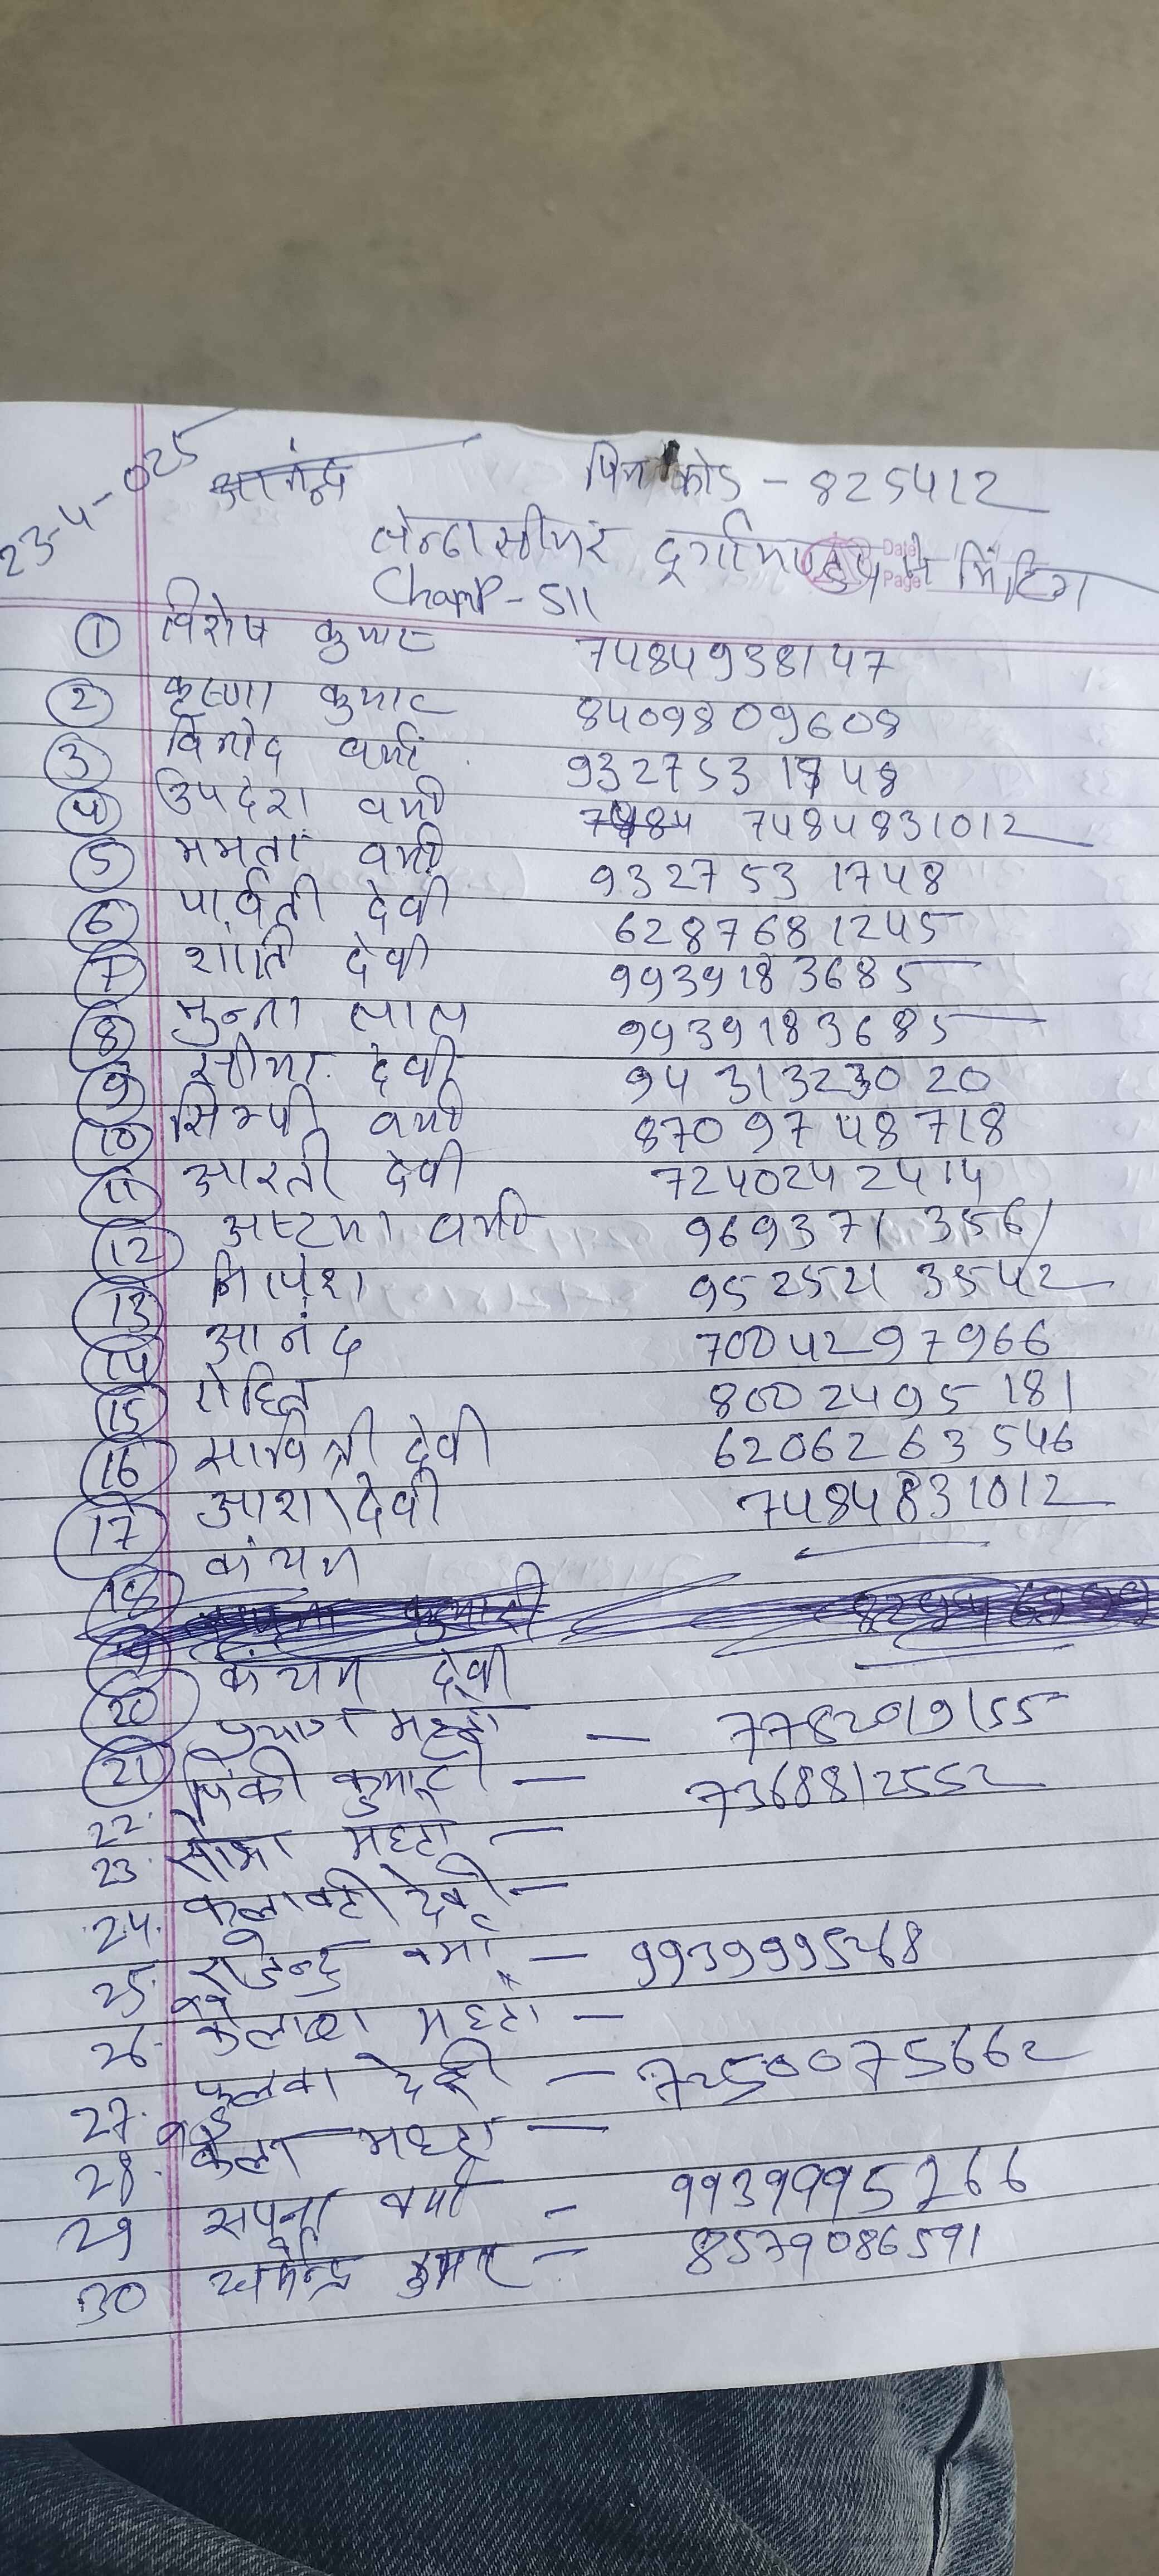 23-4-025
आनंन्द पिन कोड - 825412
लेन्ढासीमर दूर्गामण्डप मे मिंटिग
Date
Page
Champ - 511
1 विशेष कुमार 7484938147
2 कृष्णा कुमार 8409809608
3 विनोद वर्मा 9327531748
4 उपदेश वर्मा 7484831012
5 ममता वर्मा 9327531748
6 पार्वती देवी 6287681245
7 शांति देवी 9939183685
8 मुन्ना लाल 9939183685
9 सीमा देवी 94313230 20
10 सिम्पी वर्मा 8709748718
11 आरती देवी 7240242414
12 अष्टमी वर्मा 969371 3561
13 952521 3542
14 आनंद 7004297966
15 रोहित 8002495181
16 सावित्री देवी 6206263546
17 आशा देवी 7484831012
18 कंचन
19
20 कंचन देवी
21 महतो — 7782919155
22. पिंकी कुमारी — 7368812552
23. सोमा महतो —
24. कलावती देवी —
25. राजेन्द्र वर्मा — 9939995268
26. कैलाश महतो —
27. फुलवा देवी — 7250075662
28. महतो —
29 सपना वर्मा — 9939995266
30 धर्मेन्द्र कुमार — 8579086591